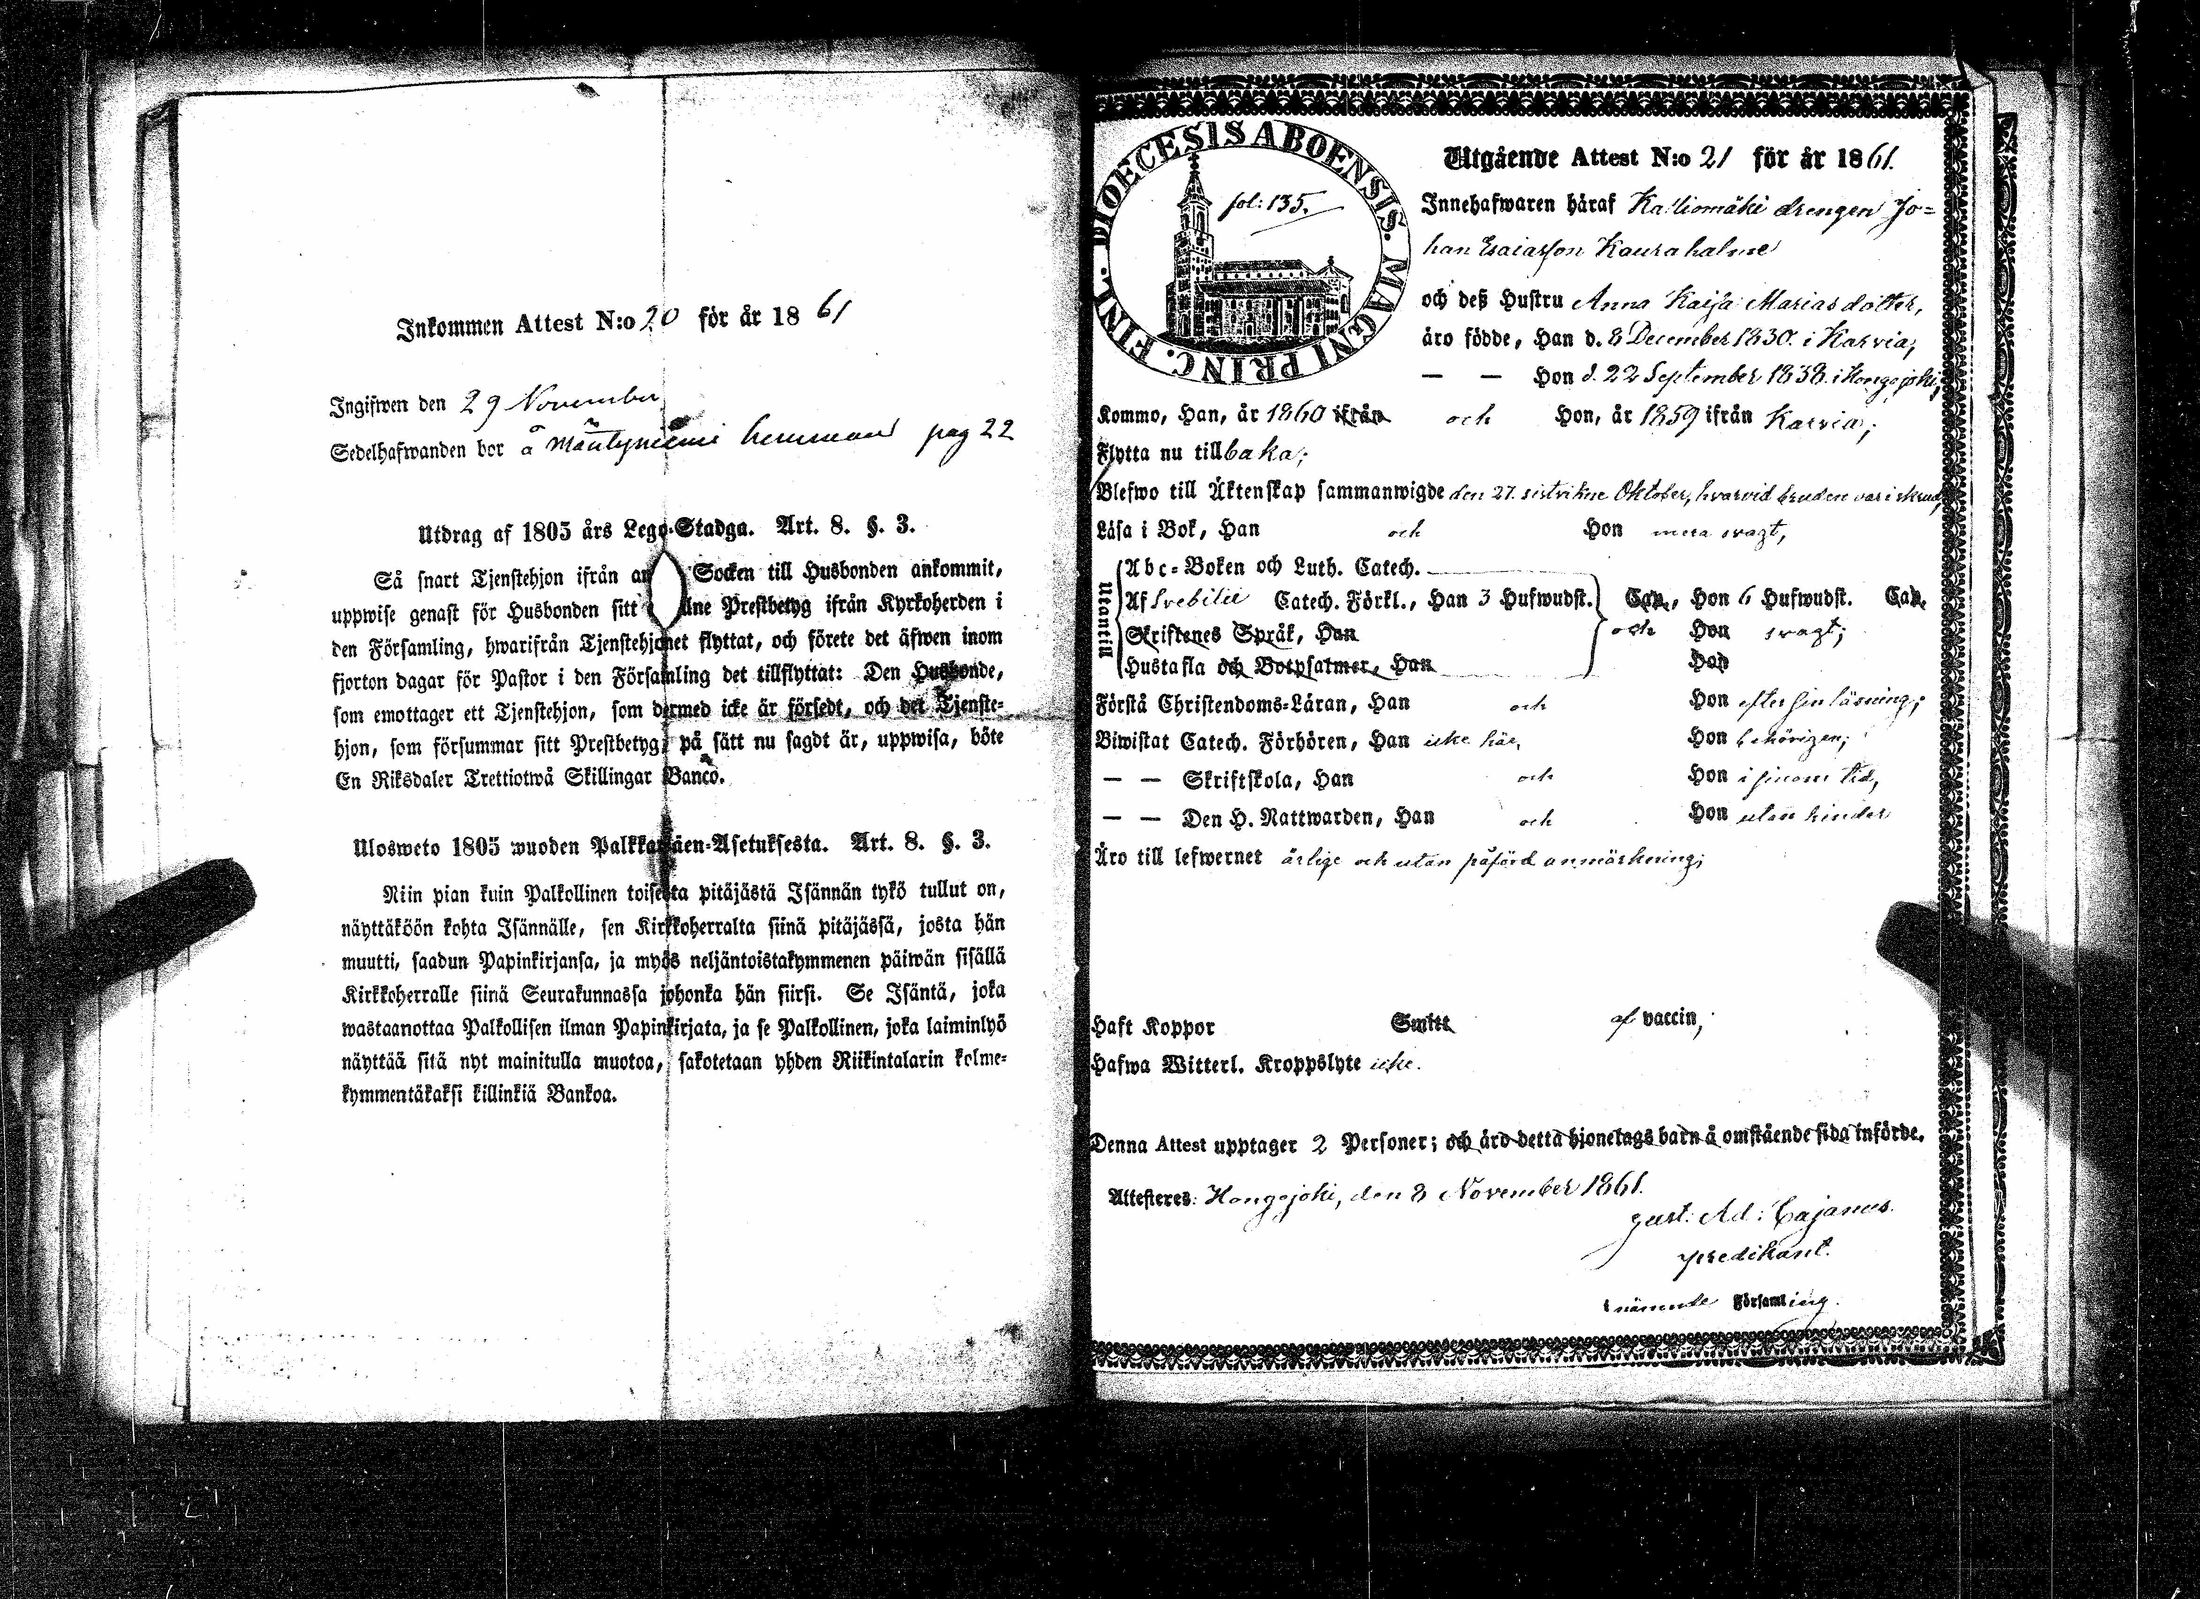 Inkommen Attest N:o 20 för år 1861
Ingifwen den 29 November
Sedelhafwanden bor å Mäntyniemi hemman pag 22
Utdrag af 1805 års Lego-Stadga. Art. 8. §. 3.
Så snart Tjenstehjon ifrån an Socken till Husbonden ankommit,
uppwise genast för Husbonden sitt Prestbetyg ifrån Kyrkoherden i
den Församling, hwarifrån Tjenstehjonet flyttat, och förete det äfwen inom
fjorton dagar för Pastor i den Församling det tillflyttat: Den Husbonde,
som emottager ett Tjenstehjon, som dermed icke är försedt, och det Tjenste-
hjon, som försummar sitt Prestbetyg, på sätt nu sagdt är, uppwisa, böte
En Riksdaler Trettiotwå Skillingar Banco.
Ulosweto 1805 wuoden Palkkawäen-Asetuksesta. Art. 8. §. 3.
Niin pian kuin Palkollinen toisesta pitäjästä Isännän tykö tullut on,
näyttäköön kohta Isännälle, sen Kirkkoherralta siinä pitäjässä, josta hän
muutti, saadun Papinkirjansa, ja myös neljäntoistakymmenen päiwän sisällä
Kirkkoherralle siinä Seurakunnassa johonka hän siirsi. Se Isäntä, joka
wastaanottaa Palkollisen ilman Papinkirjata, ja se Palkollinen, joka laiminlyö
näyttää sitä nyt mainitulla muotoa, sakotetaan yhden Riikintalarin kolme-
kymmentäkaksi killinkiä Bankoa.
DIOECESIS ABOENSIS. MAGNI PRINC. FINL.
fol: 135.
Utgående Attest N:o 21 för år 1861.
Innehafwaren häraf Kalliomäki drengen Jo=
han Esaiasson Kaurahalme
och deß Hustru Anna Kaija Mariasdotter,
äro födde, Han d. 8 December 1830. i Karvia,
— — Hon d. 22 September 1838. i Hongojoki,
Kommo, Han, år 1860 ifrån och Hon, år 1859 ifrån Karvia;
Flytta nu tillbaka;
Blefwo till Äktenskap sammanwigde den 27. sistvikne Oktober, hvarvid bruden var i skrud,
Läsa i Bok, Han och Hon mera svagt,
Utantill
Abc-Boken och Luth. Catech.
Af Svebilii Catech. Förkl., Han 3 Hufwudst. Cap., Hon 6 Hufwudst. Cap.
Skriftenes Språk, Han och Hon svagt;
Hustafla och Botpsalmer, Han Hon
Förstå Christendoms-Läran, Han och Hon efter sin läsning;
Biwistat Catech. Förhören, Han icke här, Hon behörigen;
— — Skriftskola, Han och Hon i sinom tid,
— — Den H. Nattwarden, Han och Hon utan hinder
Äro till lefwernet ärlige och utan påförd anmärkning;
Haft Koppor Smitt af vaccin,
Hafwa Witterl. Kroppslyte icke.
Denna Attest upptager 2 Personer; och äro detta hjonelags barn å omstående sida införde.
Attesteras: Hongojoki, den 8 November 1861.
Gust: Ad: Cajanus.
predikant.
i nämnde Församling.